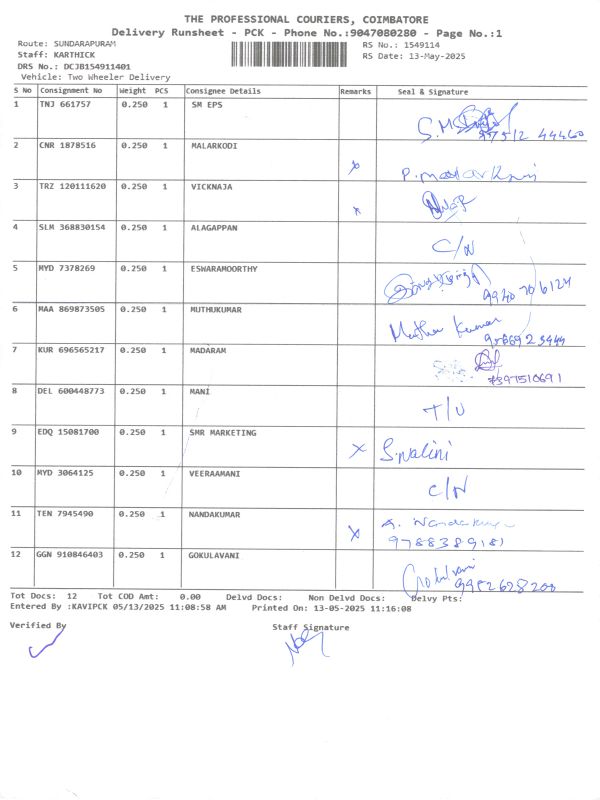 THE PROFESSIONAL COURIERS, COIMBATORE
Delivery Runsheet - PCK - Phone No.:9047080280 - Page No.:1
Route: SUNDARAPURAM RS No.: 1549114
Staff: KARTHICK RS Date: 13-May-2025
DRS No.: DCJB154911401
Vehicle: Two Wheeler Delivery
S No Consignment No Weight PCS Consignee Details Remarks Seal & Signature
1 TNJ 661757 0.250 1 SM EPS
44460
2 CNR 1878516 0.250 1 MALARKODI x P.
3 TRZ 120111620 0.250 1 VICKNAJA x
4 SLM 368830154 0.250 1 ALAGAPPAN C/N
5 MYD 7378269 0.250 1 ESWARAMOORTHY
9940 706124
6 MAA 869873505 0.250 1 MUTHUKUMAR Muthu Kumar
7 KUR 696565217 0.250 1 MADARAM
8 DEL 600448773 0.250 1 MANI T/U
9 EDQ 15081700 0.250 1 SMR MARKETING x S.Nalini
10 MYD 3064125 0.250 1 VEERAAMANI C/N
11 TEN 7945490 0.250 1 NANDAKUMAR x A. Nandakumar
12 GGN 910846403 0.250 1 GOKULAVANI
Tot Docs: 12 Tot COD Amt: 0.00 Delvd Docs: Non Delvd Docs: Delvy Pts:
Entered By :KAVIPCK 05/13/2025 11:08:58 AM Printed On: 13-05-2025 11:16:08
Verified By Staff Signature